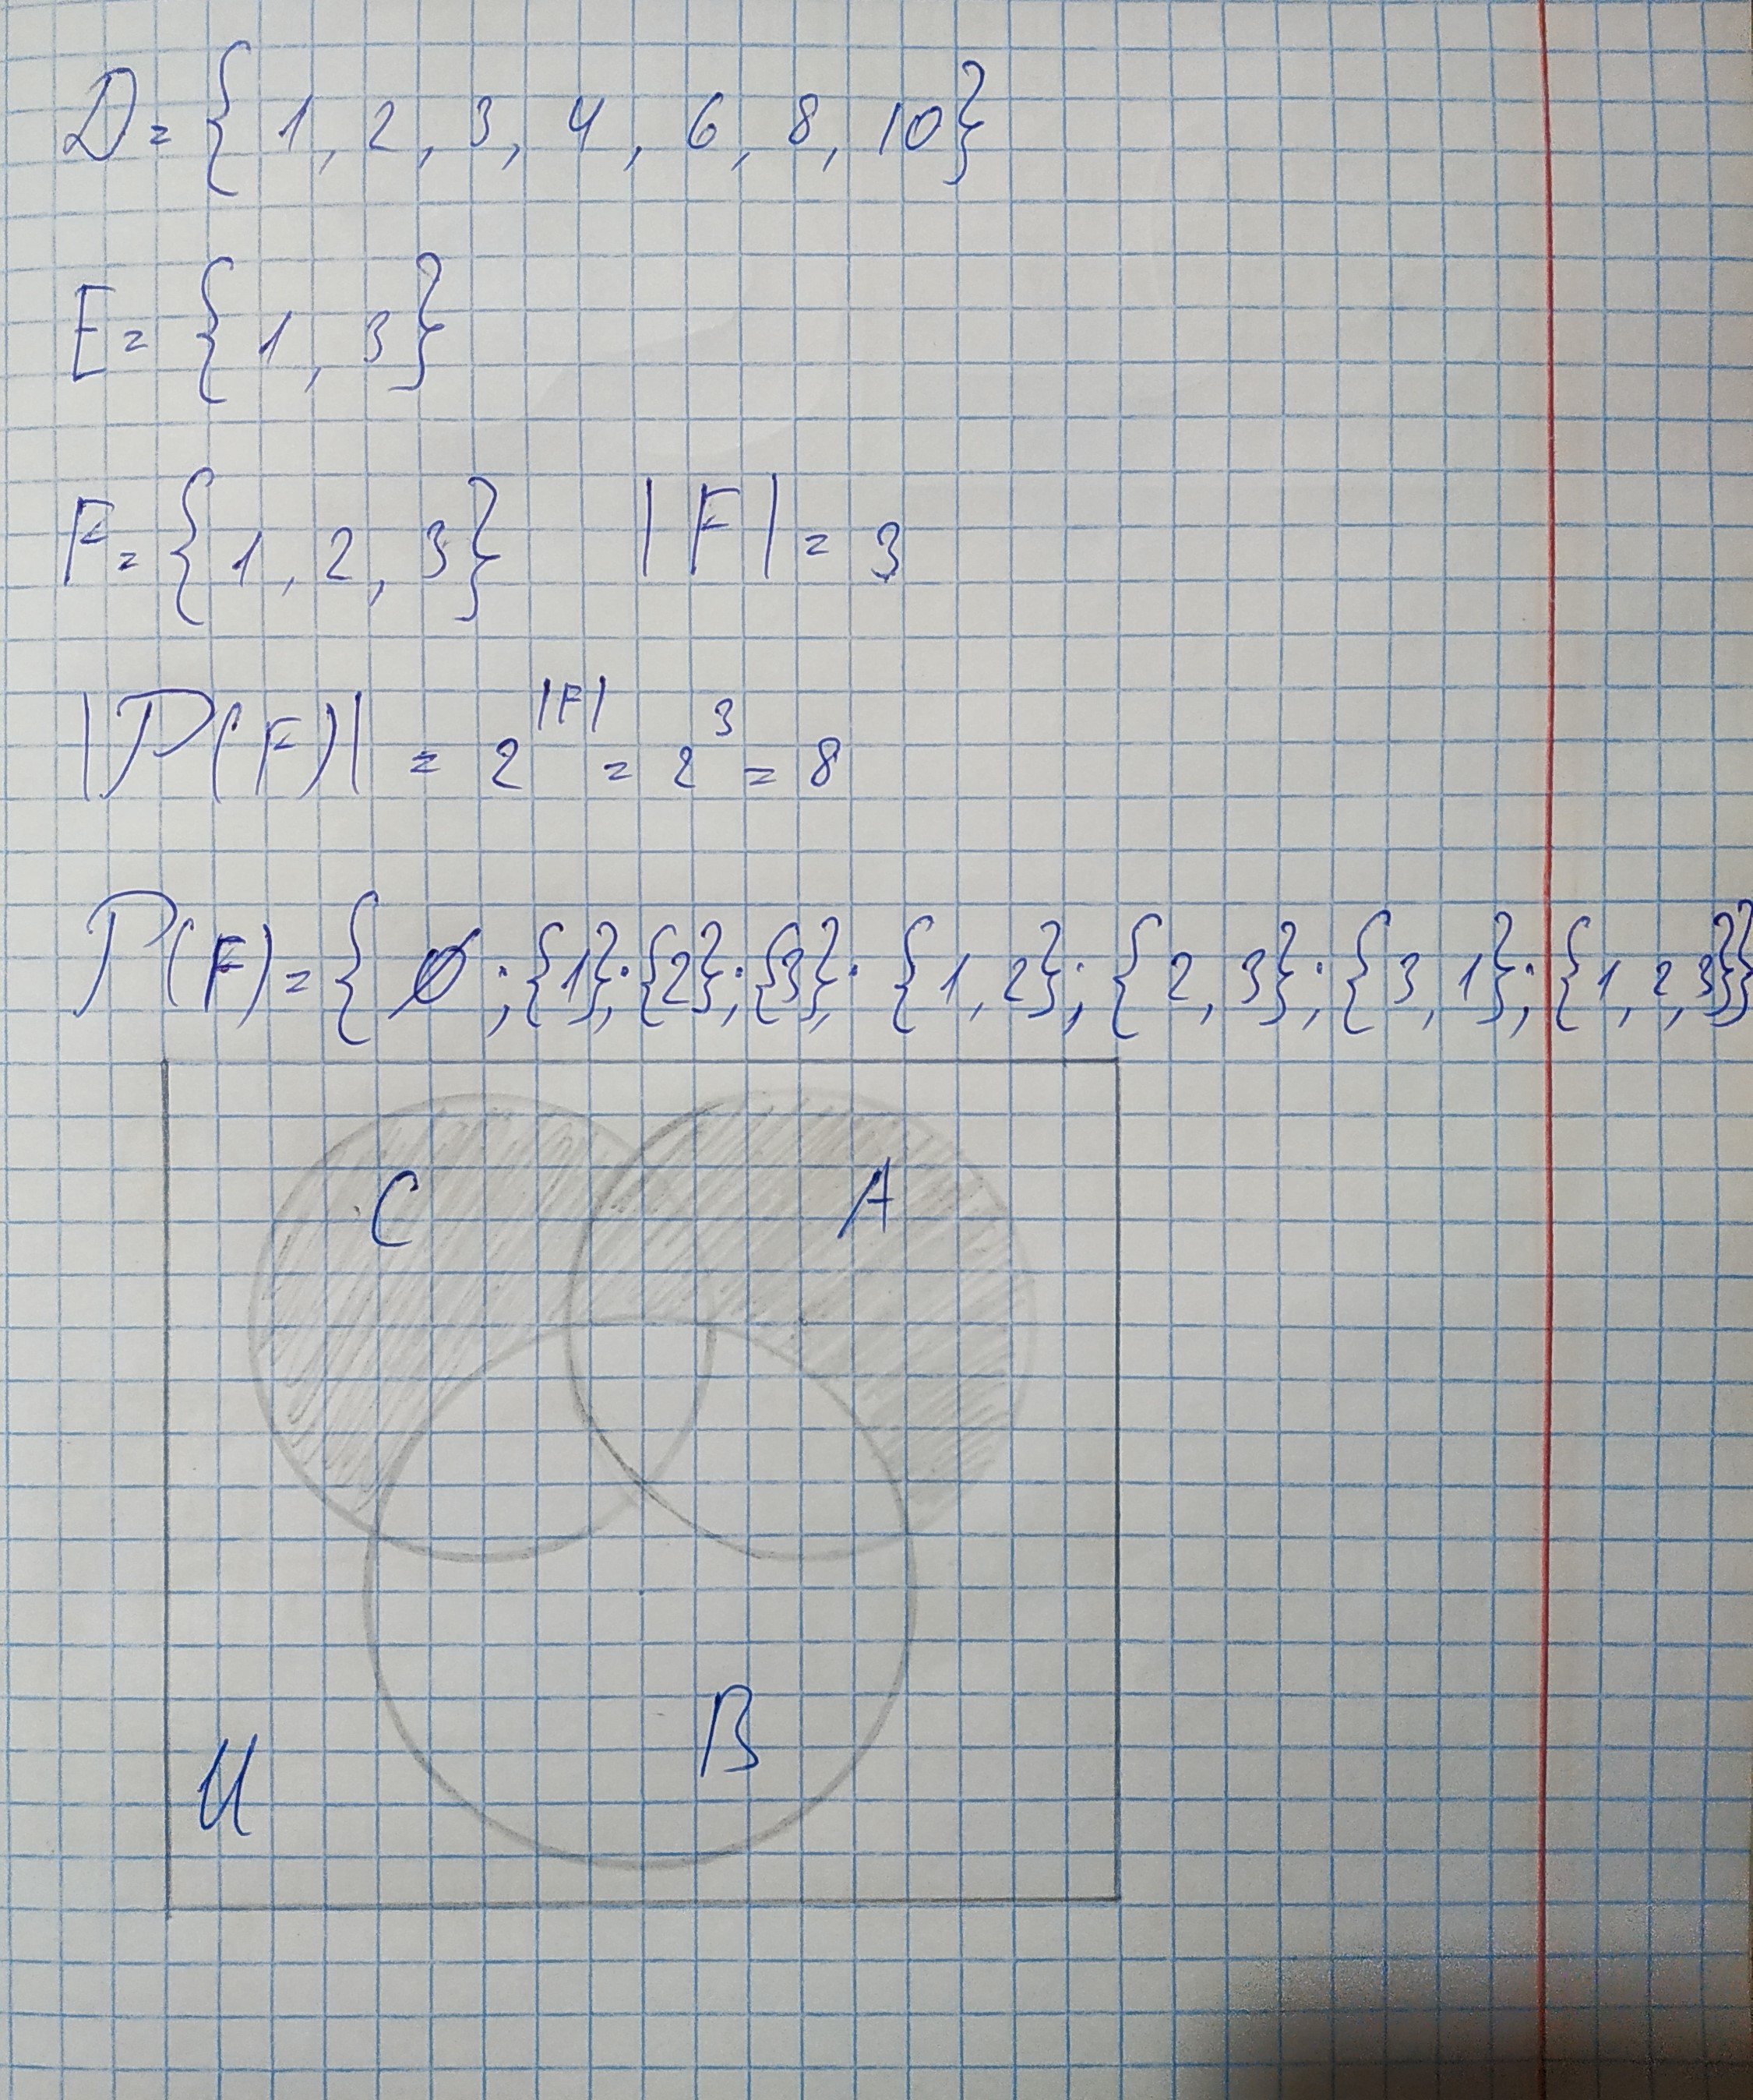 D = { 1, 2, 3, 4, 6, 8, 10}
E = { 1, 3}
F = { 1, 2, 3} |F| = 3
|P(F)| = 2^|F| = 2^3 = 8
P(F) = { ∅ ; {1}; {2}; {3}; {1, 2}; {2, 3}; {3, 1}; {1, 2, 3}}
C A
B
U